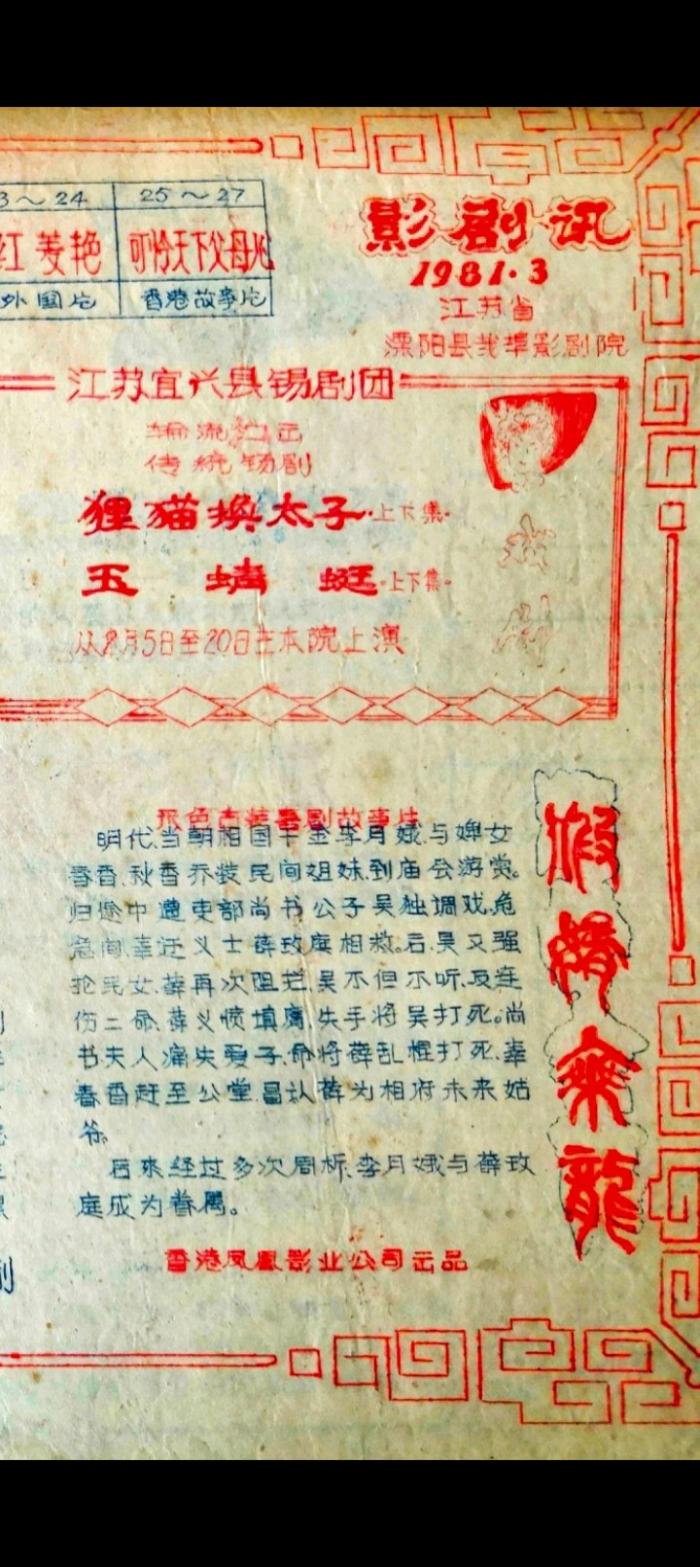 影剧讯
1981.3
江苏省
溧阳县戋埠影剧院
3～24
25～27
红菱艳
可怜天下父母心
外国片
香港故事片
江苏宜兴县锡剧团
轮流演出
传统锡剧
狸猫换太子·上下集·
玉蜻蜓·上下集·
从2月5日至20日在本院上演
假婿乘龍
彩色古装喜剧故事片
明代,当朝相国千金李月娥与婢女
春香、秋香乔装民间姐妹,到庙会游赏。
归途中遭吏部尚书公子吴独调戏,危
急间,幸迂义士薛玫庭相救。后,吴又强
抢民女,薛再次阻拦,吴不但不听,反连
伤二命,薛义愤填膺,失手将吴打死。尚
书夫人痛失爱子,命将薛乱棍打死,幸
春香赶至公堂,冒认薛为相府未来姑
爷。
后来经过多次周析,李月娥与薛玫
庭成为眷属。
香港凤凰影业公司出品